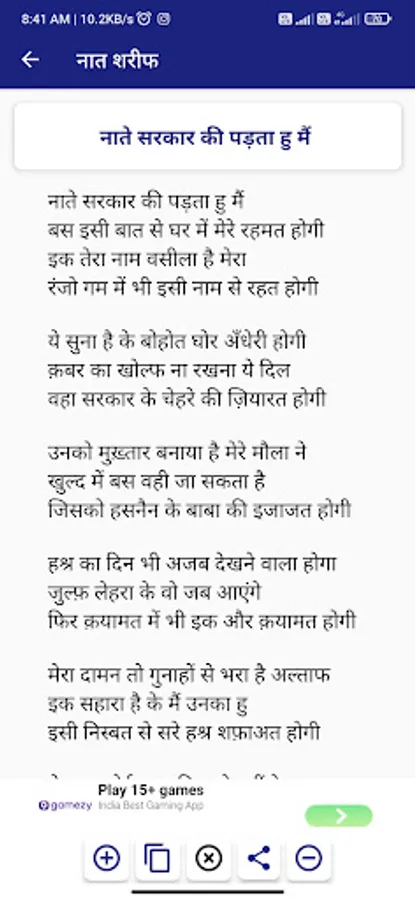 8:41 AM | 10.2KB/s
नात शरीफ
नाते सरकार की पड़ता हु मैं
नाते सरकार की पड़ता हु मैं
बस इसी बात से घर में मेरे रहमत होगी
इक तेरा नाम वसीला है मेरा
रंजो गम में भी इसी नाम से रहत होगी
ये सुना है के बोहोत घोर अँधेरी होगी
क़बर का खोल्फ ना रखना ये दिल
वहा सरकार के चेहरे की ज़ियारत होगी
उनको मुख़्तार बनाया है मेरे मौला ने
खुल्द में बस वही जा सकता है
जिसको हसनैन के बाबा की इजाजत होगी
हश्र का दिन भी अजब देखने वाला होगा
ज़ुल्फ़ लेहरा के वो जब आएंगे
फिर क़यामत में भी इक और क़यामत होगी
मेरा दामन तो गुनाहों से भरा है अल्ताफ
इक सहारा है के मैं उनका हु
इसी निस्बत से सरे हश्र शफ़ाअत होगी
Play 15+ games
gomezy India Best Gaming App